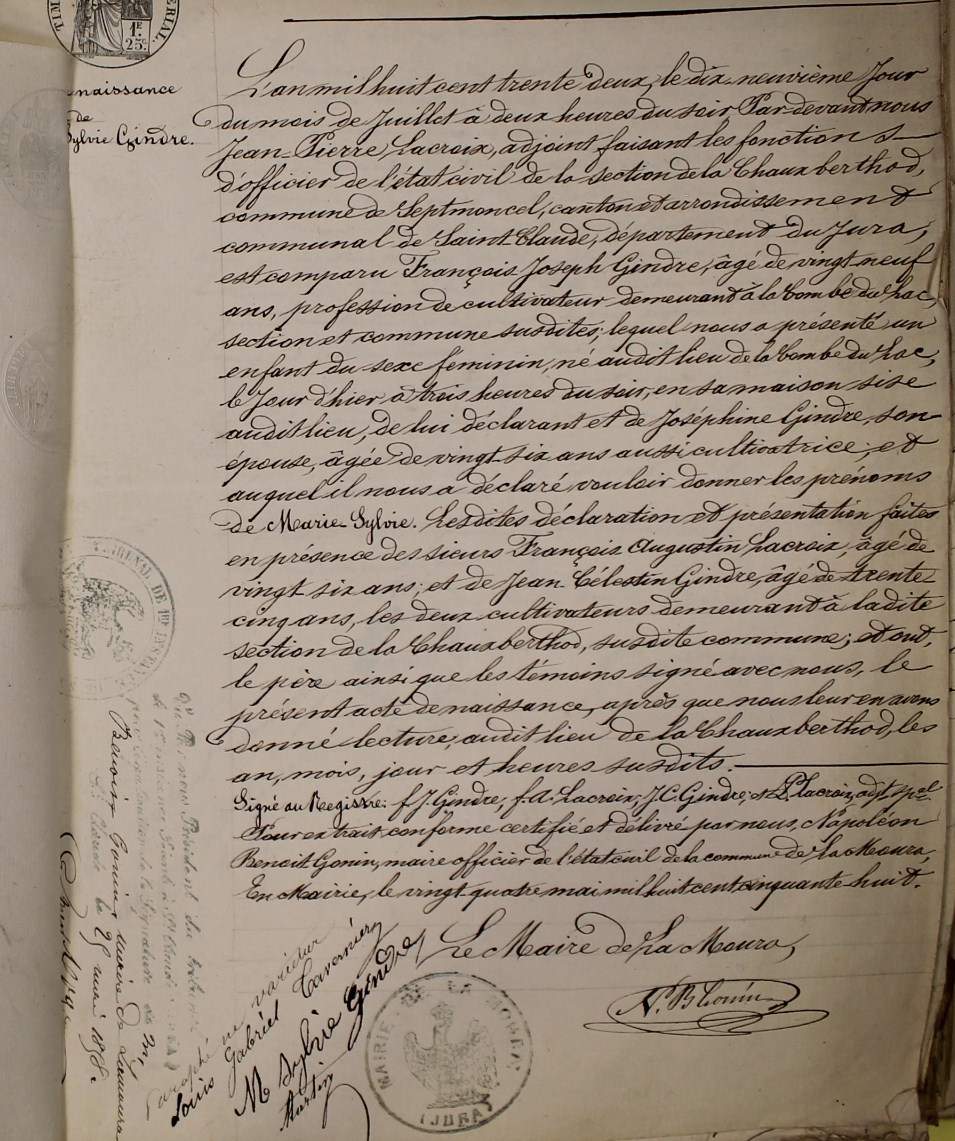 1F.
25c.
naissance
de
Sylvie Gindre.
L'an mil huit cent trente deux, le dix-neuvième Jour
du mois de Juillet à deux heures du soir, Par-devant nous
Jean-Pierre Lacroix, adjoint faisant les fonctions
d'officier de l'état civil de la section de la Chaux berthod,
commune de Septmoncel, canton et arrondissement
communal de Saint Claude, département du Jura,
est comparu François Joseph Gindre, âgé de vingt neuf
ans, profession de cultivateur demeurant à la Combe du Lac,
section et commune susdites, lequel nous a présenté un
enfant du sexe féminin, né audit lieu de la Combe du Lac,
le Jour d'hier à trois heures du soir, en sa maison sise
audit lieu, de lui déclarant et de Joséphine Gindre, son
épouse, âgée de vingt-six ans aussi cultivatrice, et
auquel il nous a déclaré vouloir donner les prénoms
de Marie-Sylvie. Lesdites déclaration et présentation faites
en présence des sieurs François Augustin Lacroix, âgé de
vingt-six ans, et de Jean-Célestin Gindre, âgé de trente
cinq ans, les deux cultivateurs demeurant à ladite
section de la Chaux berthod, susdite commune; et ont,
le père ainsi que les témoins signé avec nous, le
présent acte de naissance, après que nous leur en avons
donné lecture, audit lieu de la Chaux berthod, les
an, mois, jour et heures susdits.
Signé au Registre: f. J. Gindre, f. a. Lacroix, J. C. Gindre, et J. P. Lacroix, adjt. mpal
Pour extrait conforme certifié et délivré par nous, Napoléon
Benoit Gonin, maire officier de l'état civil de la commune de la Moura,
En Mairie, le vingt quatre mai mil huit cent cinquante huit.
Le Maire de La Moura,
N. B. Gonin
MAIRIE DE LA MOURA
(JURA)
paraphé ne varietur
Louis Gabriel Tavernier
M Sylvie Gindre
TRIBUNAL DE 1re INS
Vu Par nous Président du tribunal
de 1re instance séant à St Claude (Jura)
pour légalisation de la signature de Mr
Benoit Gonin maire de Lamoura
St Claude le 25 mai 1858.